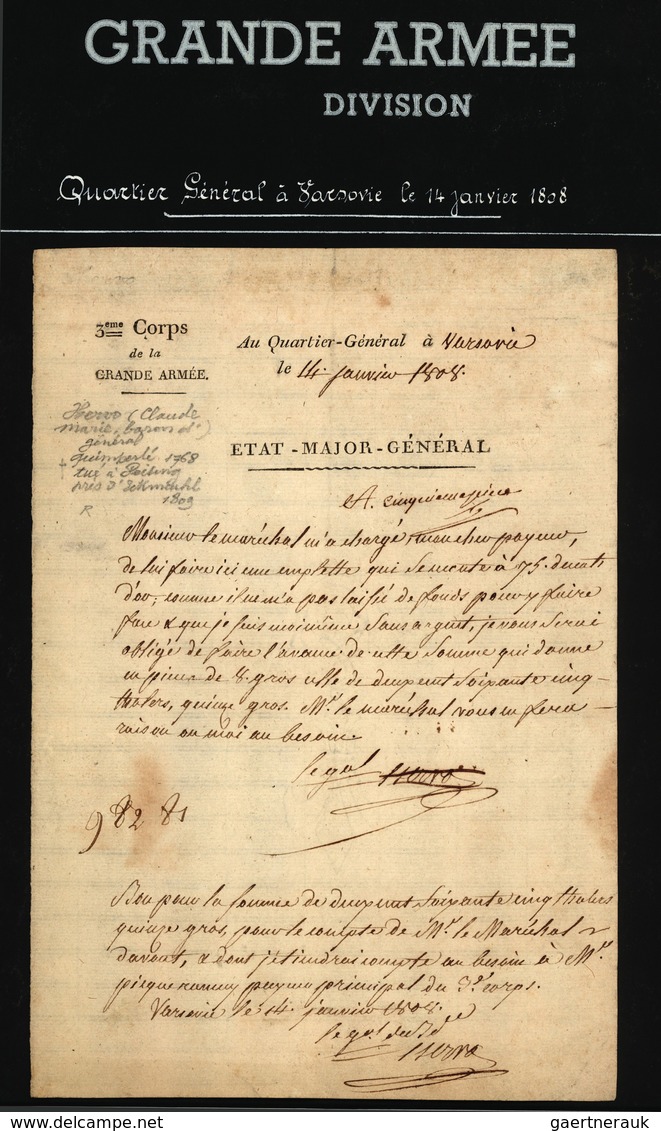 GRANDE ARMEE
DIVISION
Quartier Général à Varsovie le 14 janvier 1808
3eme Corps
de la
GRANDE ARMÉE.
Au Quartier-Général à Varsovie
le 14. janvier 1808.
Hervo (Claude
marie, baron d')
général
Quimperlé 1768
tué à
près d'Eckmuhl
1809
R
ETAT-MAJOR-GÉNÉRAL
A. cinquieme piece
Monsieur le maréchal m'a chargé, mon cher payeur,
de lui faire ici une emplette qui se monte à 75. ducats
d'or; comme il ne m'a pas laissé de fonds pour y faire
face & que je suis moimême sans argent, je vous serai
obligé de faire l'avance de cette somme qui donne
en pieces de 8. gros celle de deux cent soixante cinq
thalers, quinze gros. Mr. le maréchal vous en fera
raison ou moi au besoin.
le gal Hervo
982 81
Bon pour la somme de deux cent soixante cinq thalers
quinze gros, pour le compte de Mr. le Maréchal
davout, & dont je tiendrai compte au besoin à Mr.
payeur principal du 3e. corps.
Varsovie le 14. janvier 1808.
le gal
Hervo
www.delcampe.net
gaertnerauk